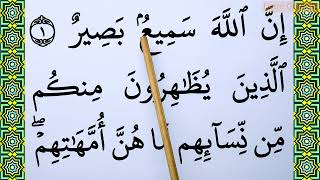 إِنَّ ٱللَّهَ سَمِيعُۢ بَصِيرٌ ١
ٱلَّذِينَ يُظَٰهِرُونَ مِنكُم
مِّن نِّسَآئِهِم مَّا هُنَّ أُمَّهَٰتِهِمۡۖ